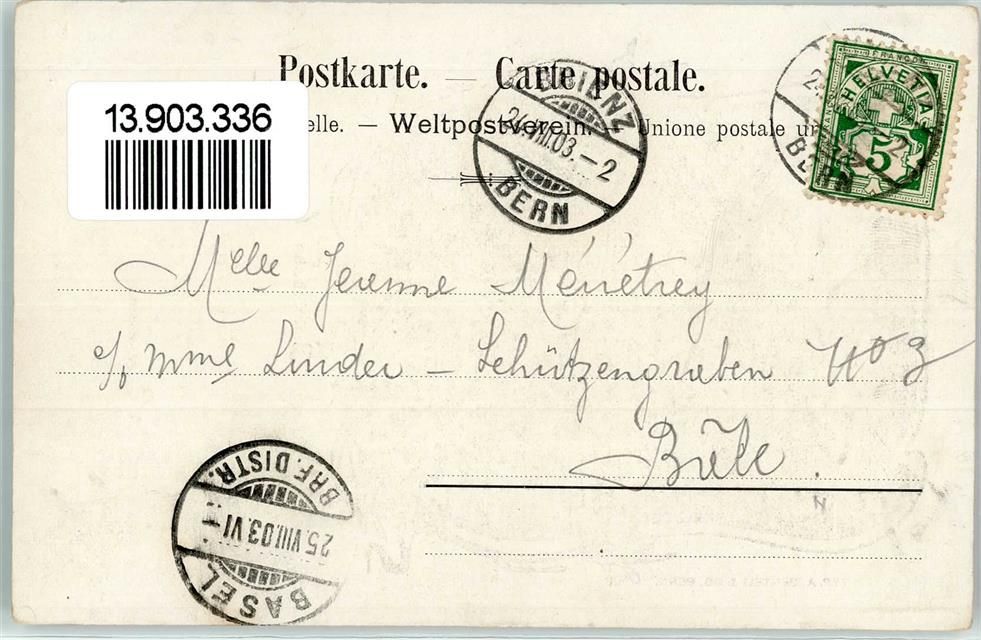 Postkarte. — Carte postale.
13.903.336
elle. — Weltpostverein. — Unione postale un
BRIENZ
24.VIII.03.–2
BERN
FRANCO
HELVETIA
5
BERN
Melle Jeanne Ménétrey
c/o Mme Linder – Schützengraben No 3
Bâle.
BASEL
25.VIII.03.VI
BRF. DISTR.